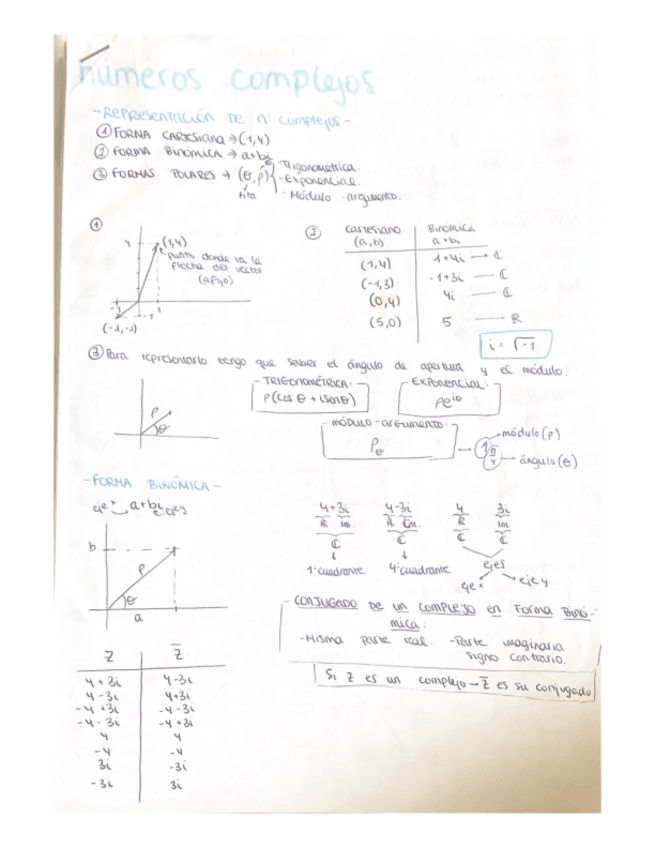 números complejos
-Representación de nº complejos-
① FORMA CARTESIANA → (1,4)
② FORMA BINÓMICA → a+bi
③ FORMAS POLARES → (θ, ρ)
Trigonométrica.
-Exponencial.
- Módulo - argumento.
tita
①
4
(1,4)
punto donde va la flecha del vector
-1
1
-1
(-1,-1)
②
Cartesiano Binómica
(a,b) a+bi
(1,4) 1+4i → ℂ
(-1,3) -1+3i — ℂ
(0,4) 4i — ℂ
(5,0) 5 — R
i = √-1
③ Para representarlo tengo que saber el ángulo de apertura y el módulo.
ρ
θ
- TRIGONOMÉTRICA: -
ρ(cos θ + i sen θ)
- EXPONENCIAL: -
ρe^iθ
- módulo-argumento: -
ρ_θ
1 π/4
módulo (ρ)
ángulo (θ)
-FORMA BINÓMICA-
eje x a+bi eje y
b
ρ
θ
a
4+3i 4-3i 4 3i
R im R im R im
ℂ ℂ ℂ ℂ
1ºcuadrante 4ºcuadrante ejes
eje x eje y
CONJUGADO DE UN COMPLEJO EN FORMA BINÓ-
MICA:
-Misma parte real. -Parte imaginaria
signo contrario.
Si z es un complejo → z̄ es su conjugado
Z Z̄
4+3i 4-3i
4-3i 4+3i
-4+3i -4-3i
-4-3i -4+3i
4 4
-4 -4
3i -3i
-3i 3i